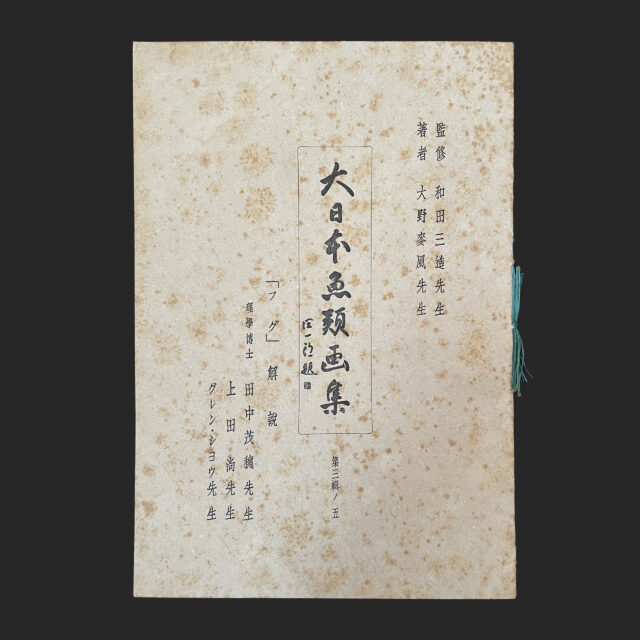 監修 和田三造先生
著者 大野麥風先生
大日本魚類画集
題
第三輯ノ五
「フグ」解説
理學博士 田中茂穗先生
上田尚先生
グレン・シヨウ先生